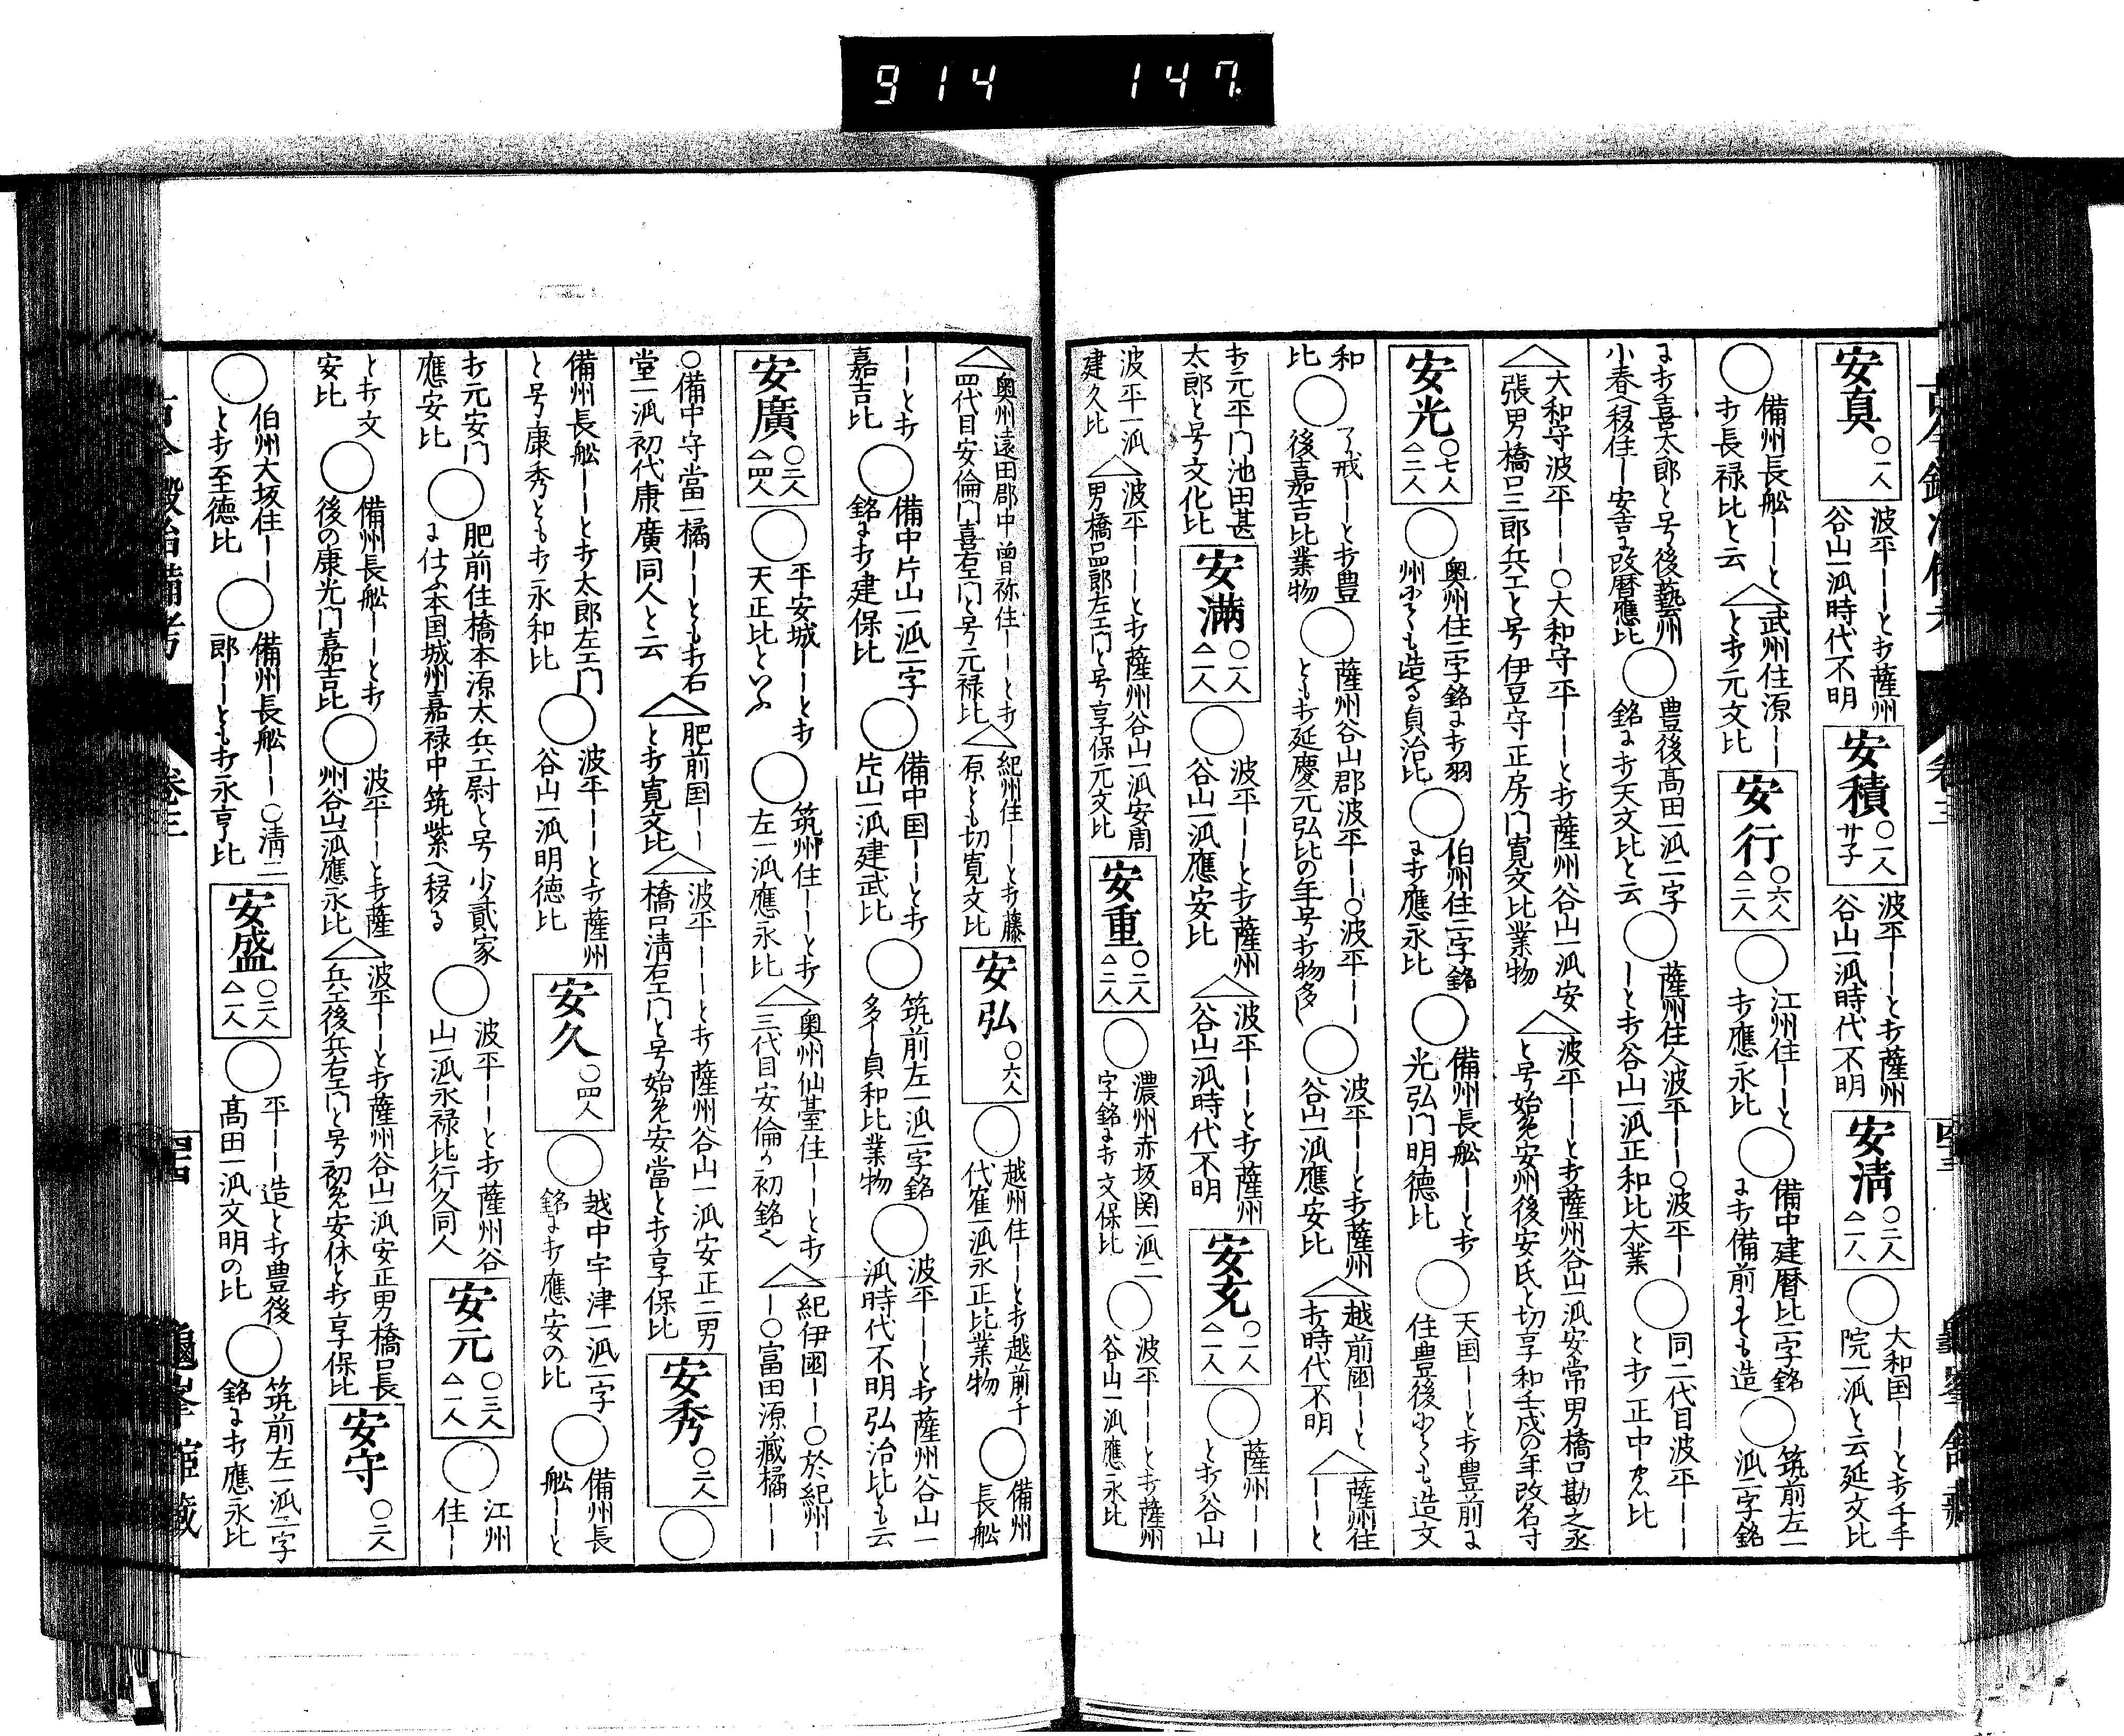 914 147
安真 〇一人
波平ーーとオ薩州
谷山一派時代不明
安積 〇一人 サ子
波平ーーとオ薩州
谷山一派時代不明
安清 〇二人 △一人
〇大和国ーーとオ千手
院一派と云延文比
〇備州長船ーーと
オ長禄比と云
△武州住源ーー
とオ元文比
安行 〇六人 △二人
〇江州住ーーと
オ應永比
〇備中建暦比二字銘
にオ備前にても造
〇筑前左一
派二字銘
にオ喜太郎と号後藝州
小春へ移住ー安吉に改暦應比
〇豊後髙田一派二字
銘にオ天文比と云
〇薩州住人波平ーー〇波平ー
ーとオ谷山一派正和比大業
〇同二代目波平ーー
とオ正中比
△大和守波平ーー〇大和守平ーーとオ薩州谷山一派安
張男橋口三郎兵エと号伊豆守正房門寛文比業物
△波平ーーとオ薩州谷山一派安常男橋口勘之丞
と号始め安州後安氏と切享和壬戌の年改名す
安光 〇七人 △二人
〇奥州住二字銘にオ羽
州にても造る貞治比
〇伯州住二字銘
にオ應永比
〇備州長船ーーとオ
光弘門明德比
〇天国ーーとオ豊前に
住豊後にても造文
和
比
〇了戒ーーとオ豊
後嘉吉比業物
〇薩州谷山郡波平ーー〇波平ーー
ともオ延慶元弘比の年号オ物多し
〇波平ーーとオ薩州
谷山一派應安比
△越前国ーーと
オ時代不明
△薩州住
ーーと
オ元平门池田甚
太郎と号文化比
安満 〇一人 △一人
〇波平ーーとオ薩州
谷山一派應安比
△波平ーーとオ薩州
谷山一派時代不明
安克 〇一人 △一人
〇薩州ーー
とオ谷山
波平一派
建久比
△波平ーーとオ薩州谷山一派安周
男橋口四郎左エ门と号享保元文比
安重 〇二人 △二人
〇濃州赤坂関一派二
字銘にオ文保比
〇波平ーーとオ薩州
谷山一派應永比
△奥州遠田郡中曽祢住ーーとオ
四代目安倫门喜右エ门と号元禄比
△紀州住ーーとオ藤
原とも切寛文比
安弘 〇六人
〇越州住ーーとオ越前千
代雀一派永正比業物
〇備州
長船
ーーとオ
嘉吉比
〇備中片山一派二字
銘にオ建保比
〇備中国ーーとオ
片山一派建武比
〇筑前左一派二字銘
多ー貞和比業物
〇波平ーーとオ薩州谷山一
派時代不明弘治比も云
安廣 〇三人 △四人
〇平安城ーーとオ
天正比といふ
〇筑州住ーーとオ
左一派應永比
△奥州仙臺住ーーとオ
三代目安倫の初銘へ
△紀伊國ーー〇於紀州ー
ー〇富田源蔵橘ーー
〇備中守當一橘ーーともオ右
堂一派初代康廣同人と云
△肥前国ーー
とオ寛文比
△波平ーーとオ薩州谷山一派安正二男
橋口清右エ门と号始め安當とオ享保比
安秀 〇二人
〇
備州長船ーーとオ太郎左エ门
と号康秀ともオ永和比
〇波平ーーとオ薩州
谷山一派明德比
安久 〇四人
〇越中宇津一派二字
銘にオ應安の比
〇備州長
船ーーと
オ元安门
應安比
〇肥前住橋本源太兵エ尉と号少貳家
に仕ふ本国城州嘉禄中筑紫へ移る
〇波平ーーとオ薩州谷
山一派永禄比行久同人
安元 〇三人 △一人
〇江州
住ー
とオ文
安比
〇備州長船ーーとオ
後の康光门嘉吉比
〇波平ーーとオ薩
州谷山一派應永比
△波平ーーとオ薩州谷山一派安正男橋口長
兵エ後兵右エ门と号初め安休とオ享保比
安守 〇二人
〇伯州大坂住ーー
とオ至德比
〇備州長船ーー〇清二
郎ーーともオ永亨比
安盛 〇三人 △一人
〇平ーー造とオ豊後
髙田一派文明の比
〇筑前左一派二字
銘にオ應永比
卷三